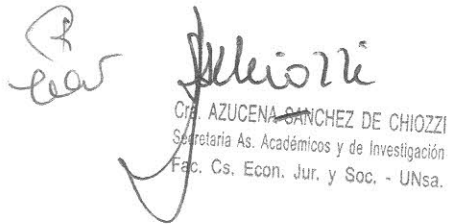 Chiozzi
Cra. AZUCENA SANCHEZ DE CHIOZZI
Secretaria As. Académicos y de Investigación
Fac. Cs. Econ. Jur. y Soc. - UNSa.